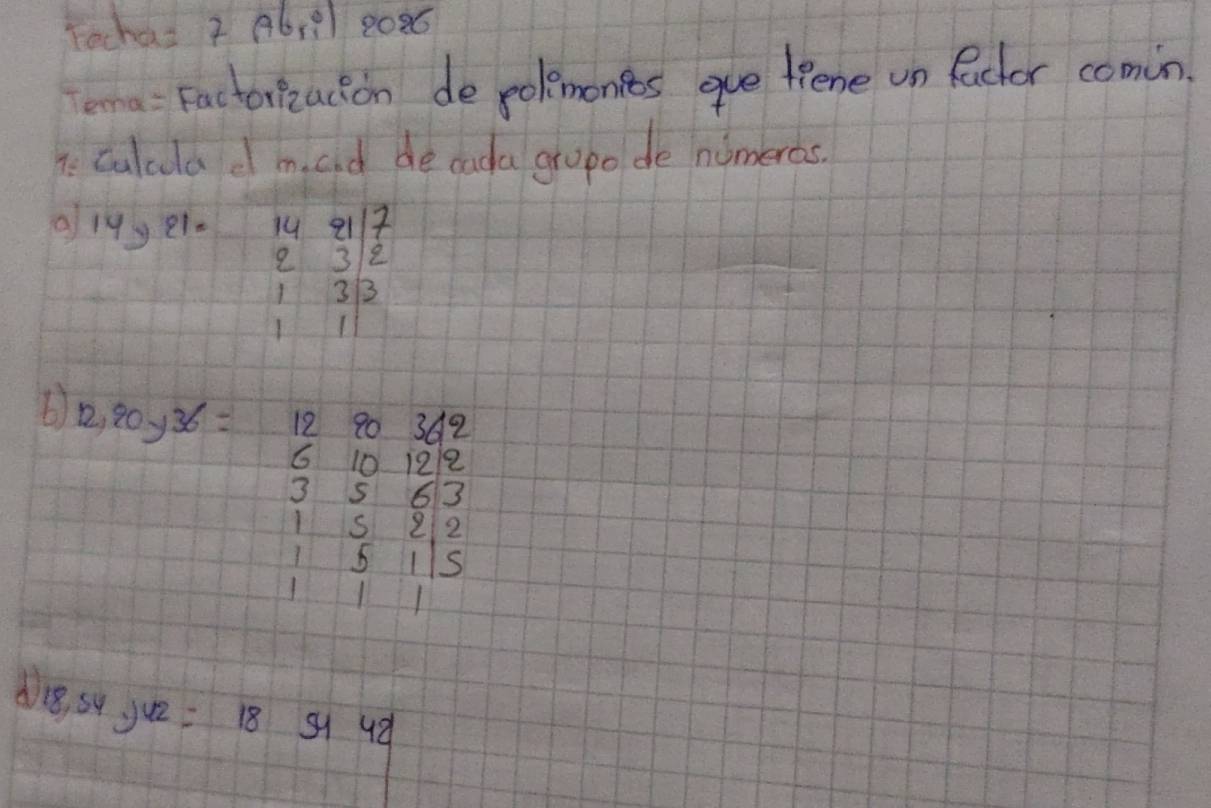 Fecha= 7 Abril 2026
Tema= Factorización de polimonios que tiene un factor común.
1: Calcula el m.c.d de cada grupo de números.
a) 14 y 21= 14 21 | 7
2 3 | 2
1 3 | 3
1 1 |
b) 12, 20 y 36 = 12 20 36 | 2
6 10 12 | 2
3 5 6 | 3
1 5 2 | 2
1 5 1 | 5
1 1 1
d) 18, 54 y 42 = 18 54 42 |